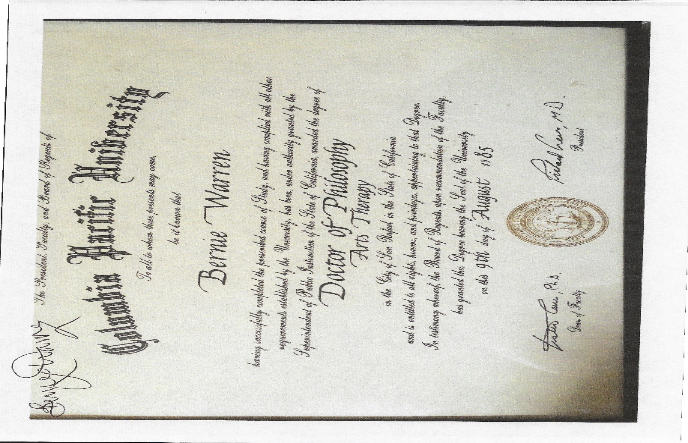 The President, Faculty, and Board of Regents of
Columbia Pacific University
To all to whom these presents may come,
be it known that
Bernie Warren
having successfully completed the prescribed course of Study, and having complied with all other
requirements established by the University, has been under authority granted by the
Superintendent of Public Instruction of the State of California, awarded the degree of
Doctor of Philosophy
Arts Therapy
in the City of San Rafael in the State of California
and is entitled to all rights, honors, and privileges, appertaining to that Degree.
In testimony whereof, the Board of Regents, upon recommendation of the Faculty,
has granted this Degree bearing the Seal of the University
on the 9th day of August 1985
M.D.
President
Ph.D.
Dean of Faculty